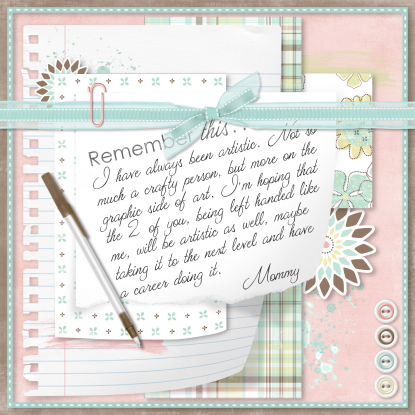 Remember this. . .
I have always been artistic. Not so
much a crafty person, but more on the
graphic side of art. I'm hoping that
the 2 of you, being left handed like
me, will be artistic as well, maybe
taking it to the next level and have
a career doing it. Mommy